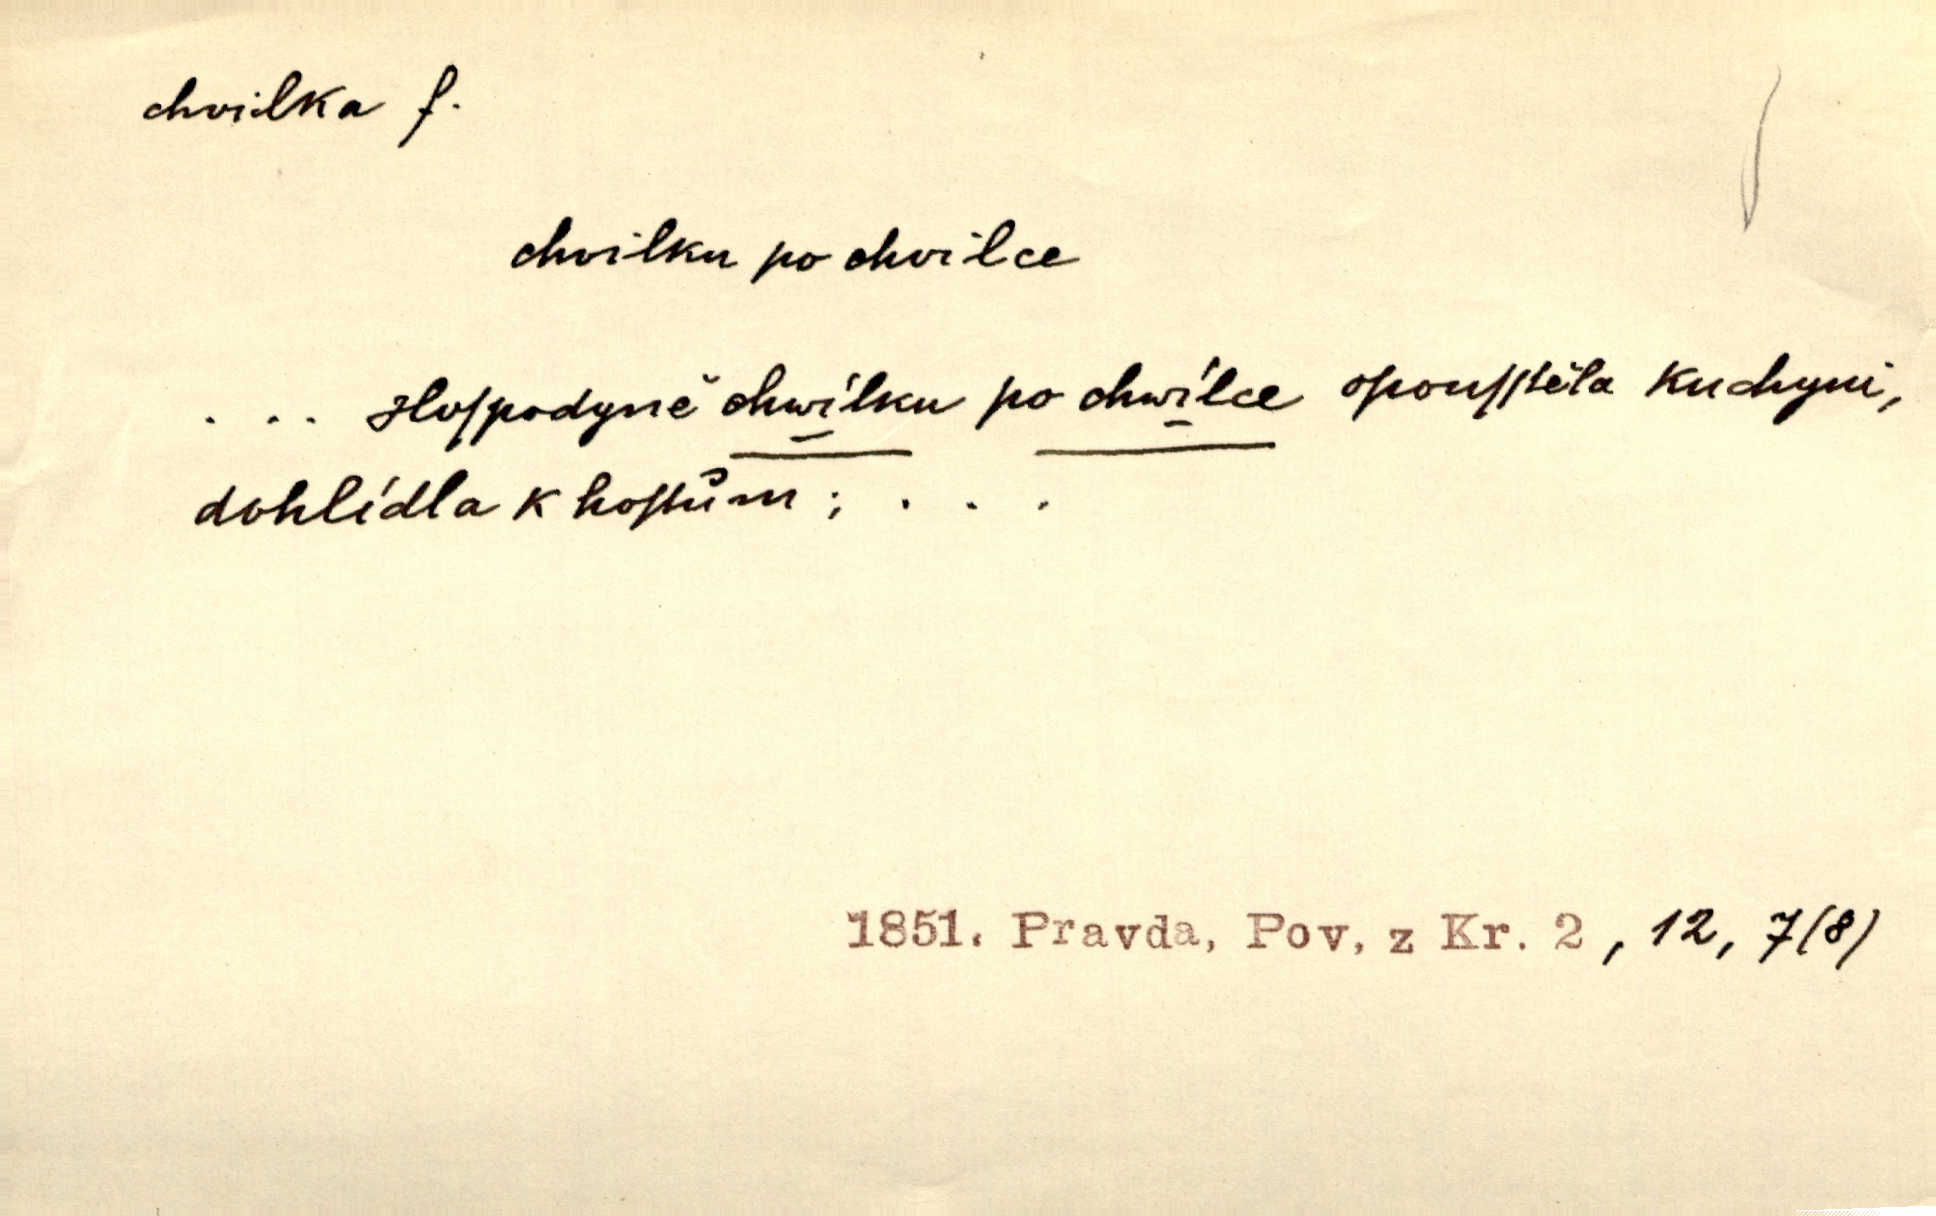 chvilka f.
chvilku po chvilce
. . . Hoſpodyně chwílku po chwílce opouſſtěla kuchyni,
dohlídla k hoſtům ; . . .
1851. Pravda, Pov. z Kr. 2 , 12, 7(8)